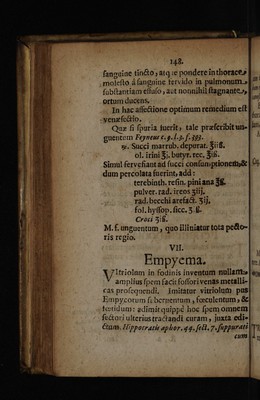 148.
sanguine tincto, atque pondere in thorace,
molesto à sanguine fervido in pulmonum
substantiam effuso, aut nonnihil stagnante,
ortum ducens.
In hac affectione optimum remedium est
venæsectio.
Quæ si spuria fuerit, tale præscribit un-
guentum Feyneus t. 9. l. 3. f. 393.
℞. Succi marrub. deporat. ℥iiß.
ol. irini ℥j. butyr. rec. ℥iß.
Simul fervefiant ad succi consumptionem, &
dum percolata fuerint, add:
terebinth. resin. pini ana ℥ß.
pulver. rad. ireos ʒiij.
rad. brechi arefact. ʒij.
fol. hyssop. sicc. ʒß.
Croci ℈iß.
M. f. unguentum, quo illiniatur tota pecto-
ris regio.
VII.
Empyema.
Vitriolum in fodinis inventum nullam
amplius spem facit fossori venas metalli-
cas prosequendi. Imitatur vitriolum pus
Empycorum fœculentum, &
totidum: adimit quippe hoc spem omnem
sectori ulterius tractandi curam, juxta edi-
ctum. Hippocratis aphor. 44. sect. 7. suppurati
cum